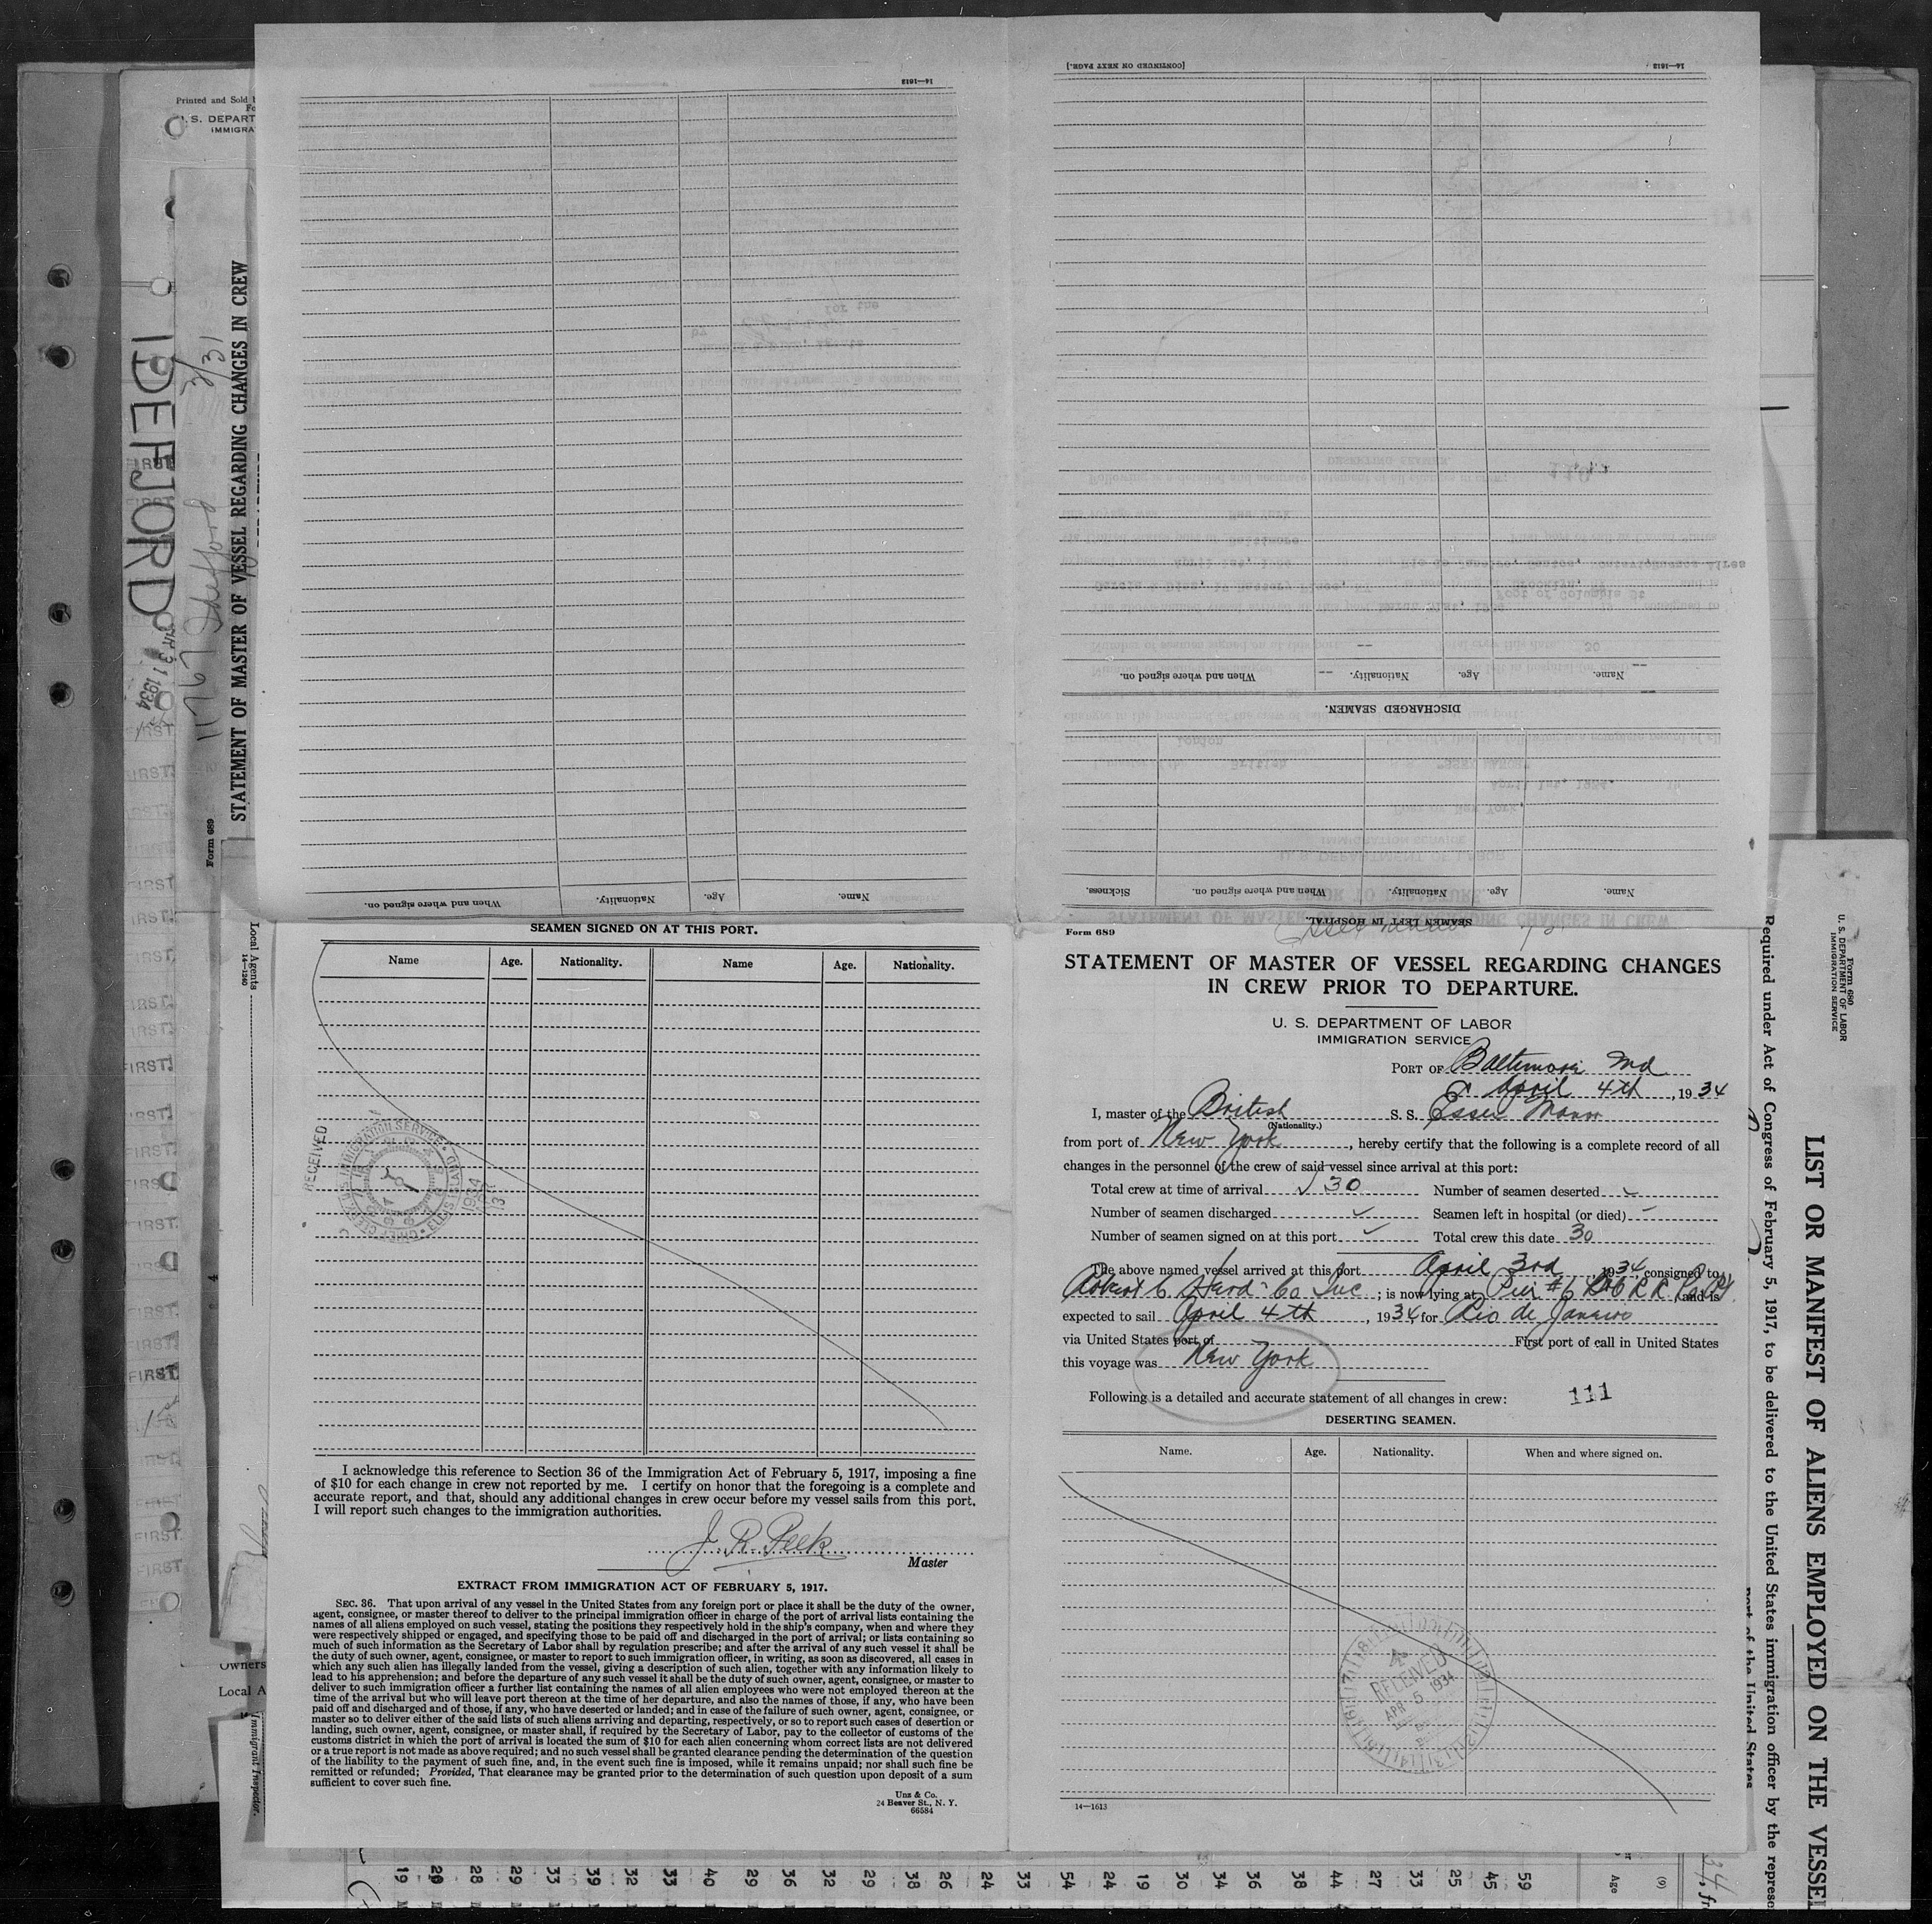 Printed and Sold b
Fo
U.S. DEPART
IMMIGRA
IDEFJORD
MAR 31 1934
11767 Idefford
3/31
STATEMENT OF MASTER OF VESSEL REGARDING CHANGES IN CREW
Form 689
FIRST.
14—1613
When and where signed on.
Nationality.
Age.
Name.
14—1613
[CONTINUED ON NEXT PAGE.]
Name.
Age.
Nationality.
When and where signed on.
DISCHARGED SEAMEN.
Name.
Age.
Nationality.
When and where signed on.
Sickness.
SEAMEN LEFT IN HOSPITAL.
SEAMEN SIGNED ON AT THIS PORT.
Name Age. Nationality. Name Age. Nationality.
RECEIVED
I acknowledge this reference to Section 36 of the Immigration Act of February 5, 1917, imposing a fine
of $10 for each change in crew not reported by me. I certify on honor that the foregoing is a complete and
accurate report, and that, should any additional changes in crew occur before my vessel sails from this port,
I will report such changes to the immigration authorities.
J. R. Peek
Master
EXTRACT FROM IMMIGRATION ACT OF FEBRUARY 5, 1917.
SEC. 36. That upon arrival of any vessel in the United States from any foreign port or place it shall be the duty of the owner,
agent, consignee, or master thereof to deliver to the principal immigration officer in charge of the port of arrival lists containing the
names of all aliens employed on such vessel, stating the positions they respectively hold in the ship's company, when and where they
were respectively shipped or engaged, and specifying those to be paid off and discharged in the port of arrival; or lists containing so
much of such information as the Secretary of Labor shall by regulation prescribe; and after the arrival of any such vessel it shall be
the duty of such owner, agent, consignee, or master to report to such immigration officer, in writing, as soon as discovered, all cases in
which any such alien has illegally landed from the vessel, giving a description of such alien, together with any information likely to
lead to his apprehension; and before the departure of any such vessel it shall be the duty of such owner, agent, consignee, or master to
deliver to such immigration officer a further list containing the names of all alien employees who were not employed thereon at the
time of the arrival but who will leave port thereon at the time of her departure, and also the names of those, if any, who have been
paid off and discharged and of those, if any, who have deserted or landed; and in case of the failure of such owner, agent, consignee, or
master so to deliver either of the said lists of such aliens arriving and departing, respectively, or so to report such cases of desertion or
landing, such owner, agent, consignee, or master shall, if required by the Secretary of Labor, pay to the collector of customs of the
customs district in which the port of arrival is located the sum of $10 for each alien concerning whom correct lists are not delivered
or a true report is not made as above required; and no such vessel shall be granted clearance pending the determination of the question
of the liability to the payment of such fine, and, in the event such fine is imposed, while it remains unpaid; nor shall such fine be
remitted or refunded; Provided, That clearance may be granted prior to the determination of such question upon deposit of a sum
sufficient to cover such fine.
Unz & Co.
24 Beaver St., N. Y.
66584
Form 689
STATEMENT OF MASTER OF VESSEL REGARDING CHANGES
IN CREW PRIOR TO DEPARTURE.
U. S. DEPARTMENT OF LABOR
IMMIGRATION SERVICE
PORT OF Baltimore Md
April 4th, 1934
I, master of the British S. S. Essex Manor
(Nationality.)
from port of New York, hereby certify that the following is a complete record of all
changes in the personnel of the crew of said vessel since arrival at this port:
Total crew at time of arrival 30 Number of seamen deserted
Number of seamen discharged Seamen left in hospital (or died) -
Number of seamen signed on at this port Total crew this date 30
The above named vessel arrived at this port April 3rd, 1934, consigned to
Robert C Herd Co Inc; is now lying at Pier #6 B&O R R, and is
expected to sail April 4th, 1934 for Rio de Janeiro
via United States port of First port of call in United States
this voyage was New York
Following is a detailed and accurate statement of all changes in crew: 111
DESERTING SEAMEN.
Name. Age. Nationality. When and where signed on.
RECEIVED
APR 5 1934
14—1613
Local Agents
14—1240
Owners
Local A
Immigrant Inspector.
Form 680
U. S. DEPARTMENT OF LABOR
IMMIGRATION SERVICE
LIST OR MANIFEST OF ALIENS EMPLOYED ON THE VESSEL
Required under Act of Congress of February 5, 1917, to be delivered to the United States immigration officer by the represe
port of the United States
19 20 28 29 33 39 32 33 40 29 36 32 29 38 26 24 33 54 24 19 30 34 36 38 44 27 33 25 45 59
Age
(9)